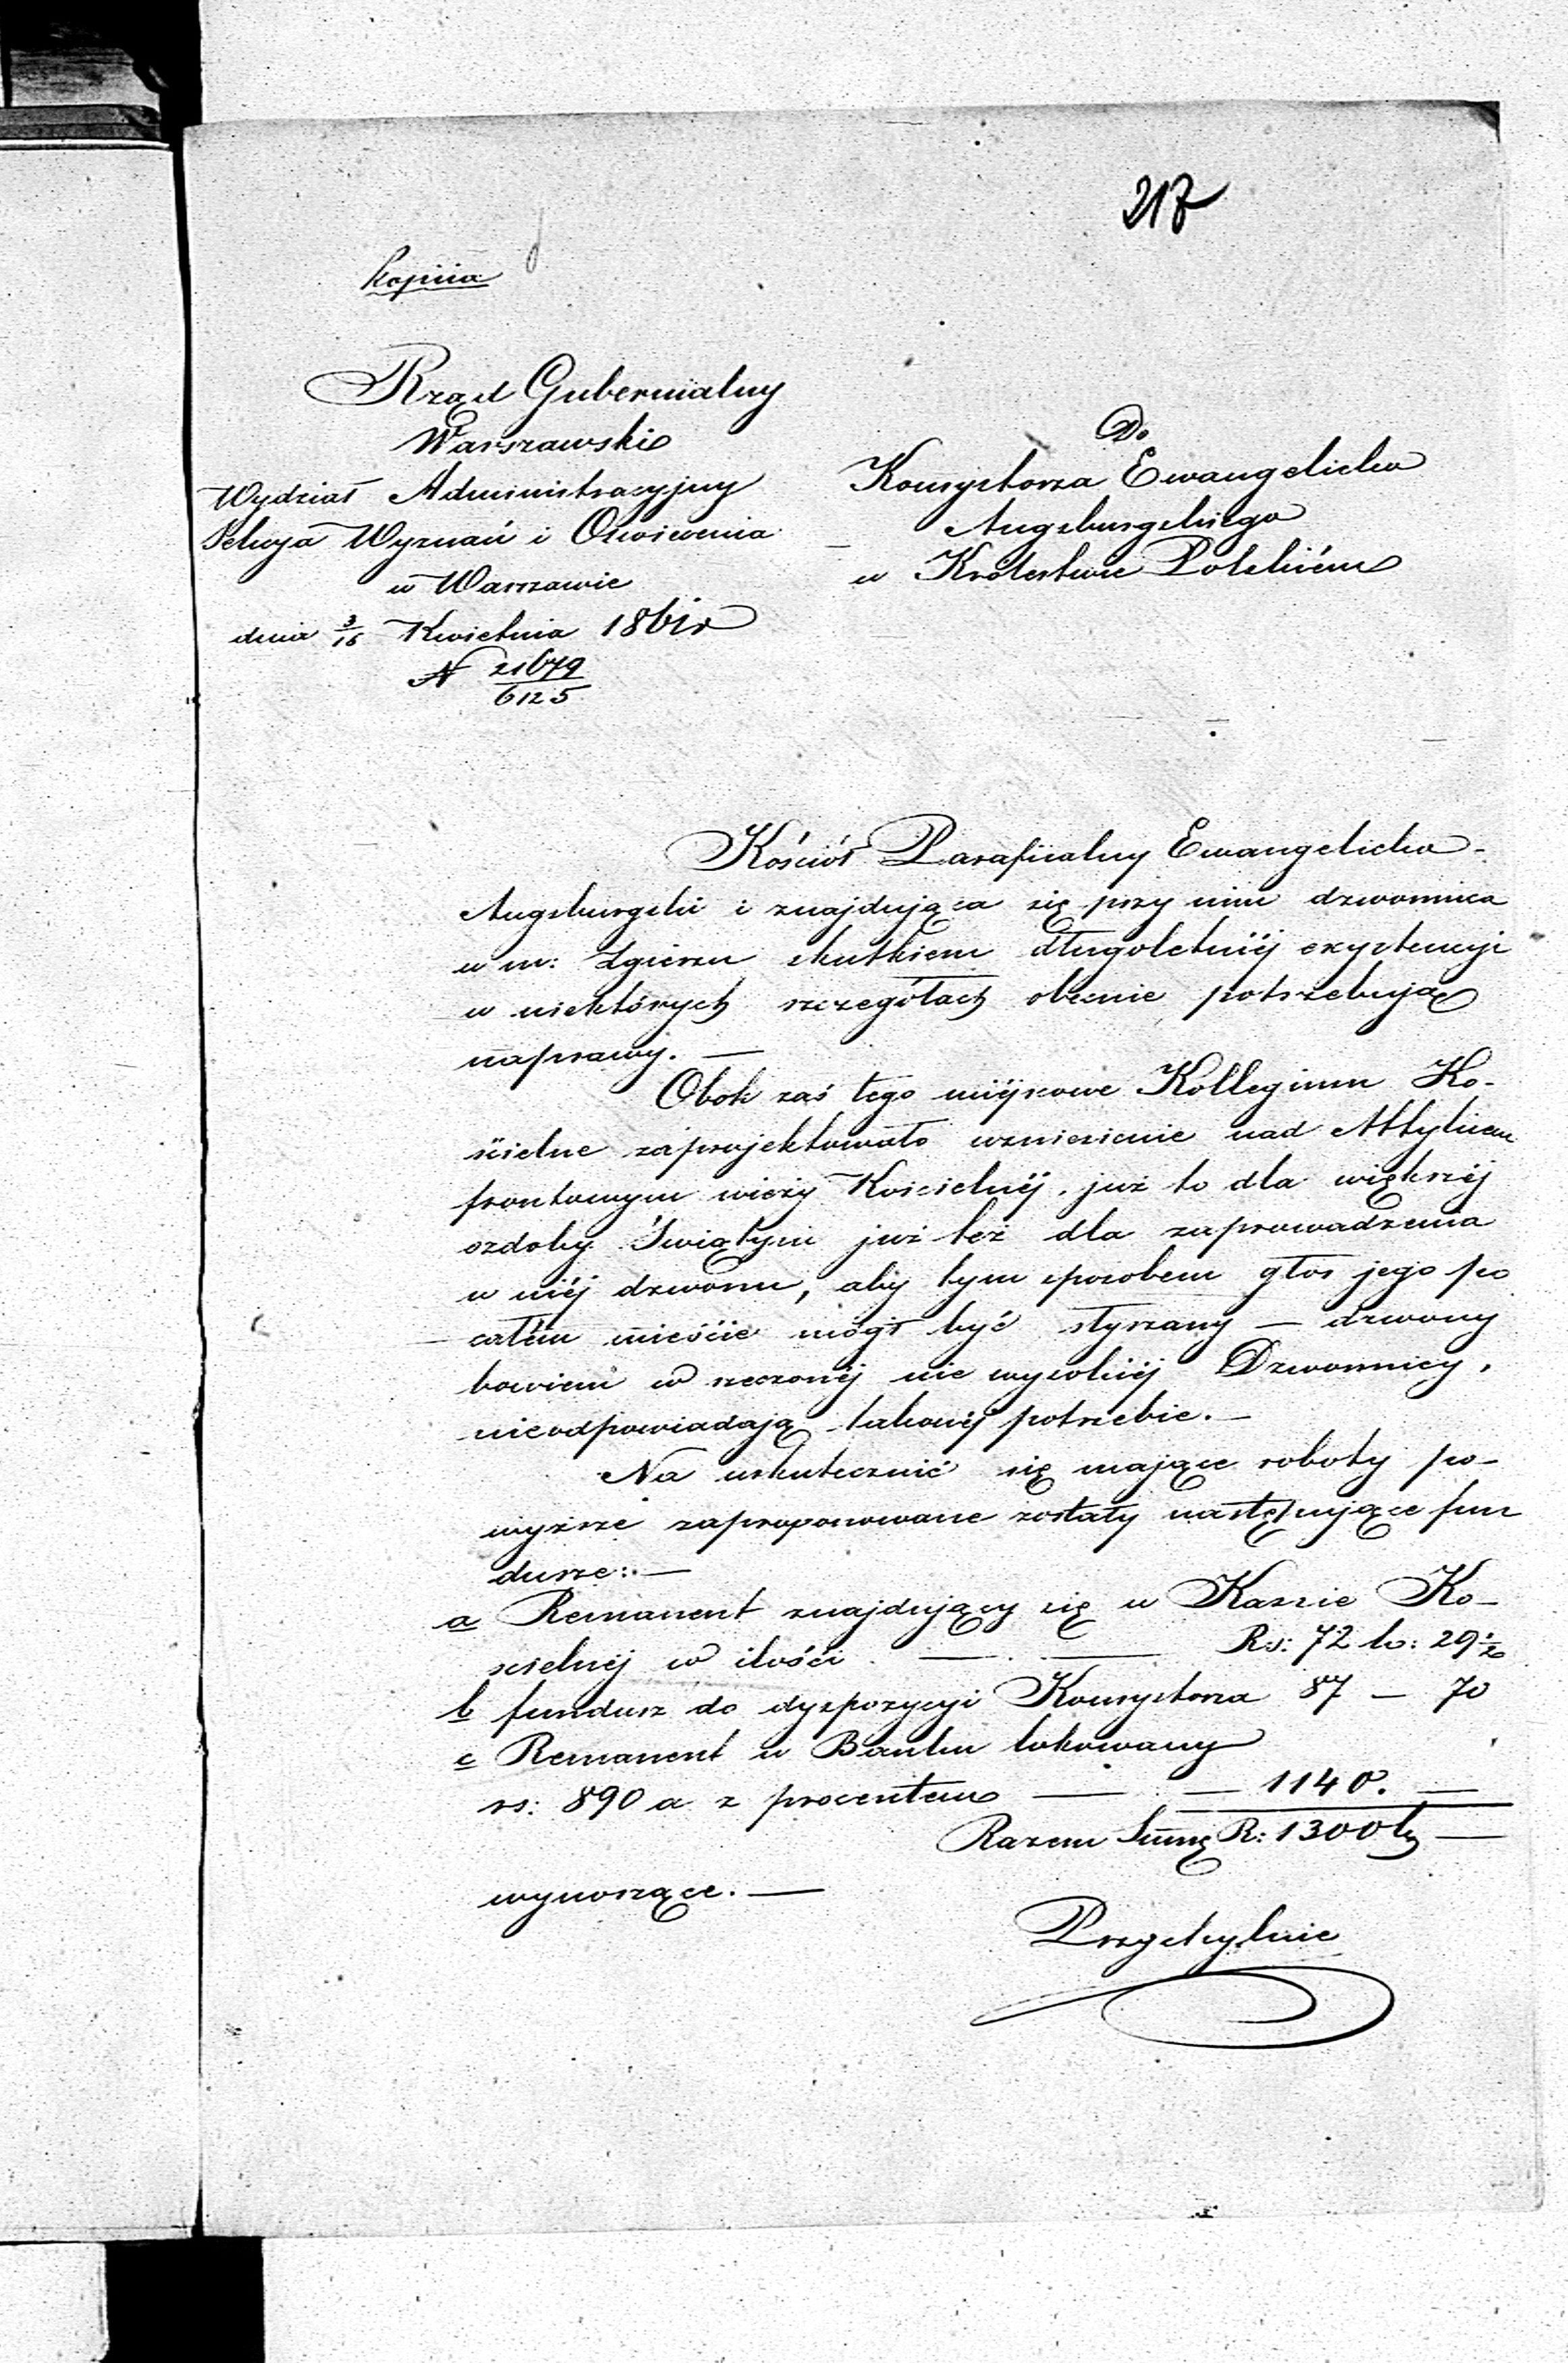 217
Kopiia
Rząd Gubernialny
Warszawski
Wydział Administracyjny
Sekcya Wyznań i Oświecenia
w Warszawie
dnia 3/15 Kwietnia 1861 r
N 21679/6125
Do
Konsystorza Ewangelicko
Augsburgskiego
w Królestwie Polskiém
Kościół Parafiialny Ewangelicko-
Augsburgski i znajdująca się przy nim dzwonnica
w m: Zgierzu skutkiem długoletniéj exystencyi
w niektórych szczegółach obecnie potrzebują
naprawy. —
Obok zaś tego miéjscowe Kollegium Ko-
ścielne zaprojektowało wzniesienie nad Attykiem
frontowym wieży Kościelnéj, już to dla większéj
ozdoby Świątyni już też dla zaprowadzenia
w niéj dzwonu, aby tym sposobem głos jego po
całém mieście mógł być słyszany — dzwony
bowiem w rzeczonéj nie wysokiéj Dzwonnicy,
nieodpowiadają takowéj potrzebie. —
Na uskutecznić się mające roboty po-
wyższe zaproponowane zostały następujące fun
dusze: —
a Remanent znajdujący się w Kassie Ko-
scielnéj w ilości — — Rs: 72 k: 29 1/2
b fundusz do dyspozycyi Konsystorza 87 — 70
c Remanent w Banku lokowany
rs: 890 a z procentem — — 1140. —
Razem Summę R: 1300 k —
wynoszące. —
Przychylnie